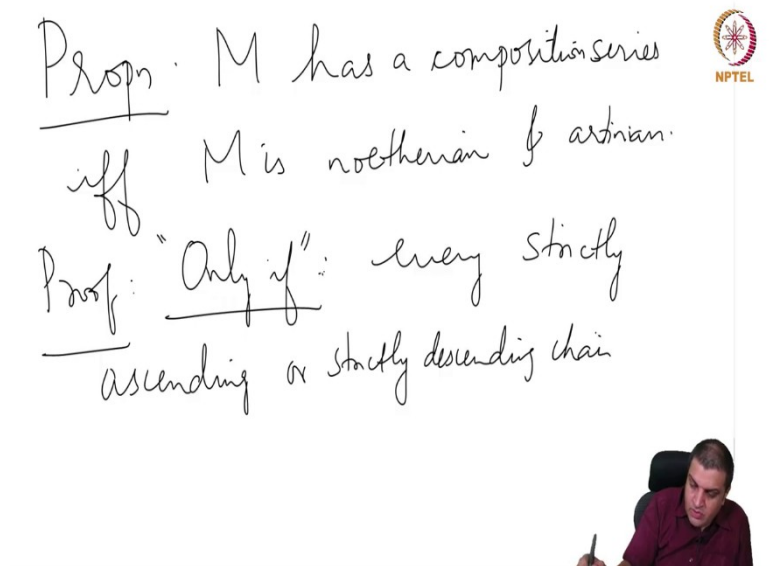 Propn. M has a composition series
NPTEL
iff M is noetherian & artinian.
Proof: "Only if": every strictly
ascending or strictly descending chain